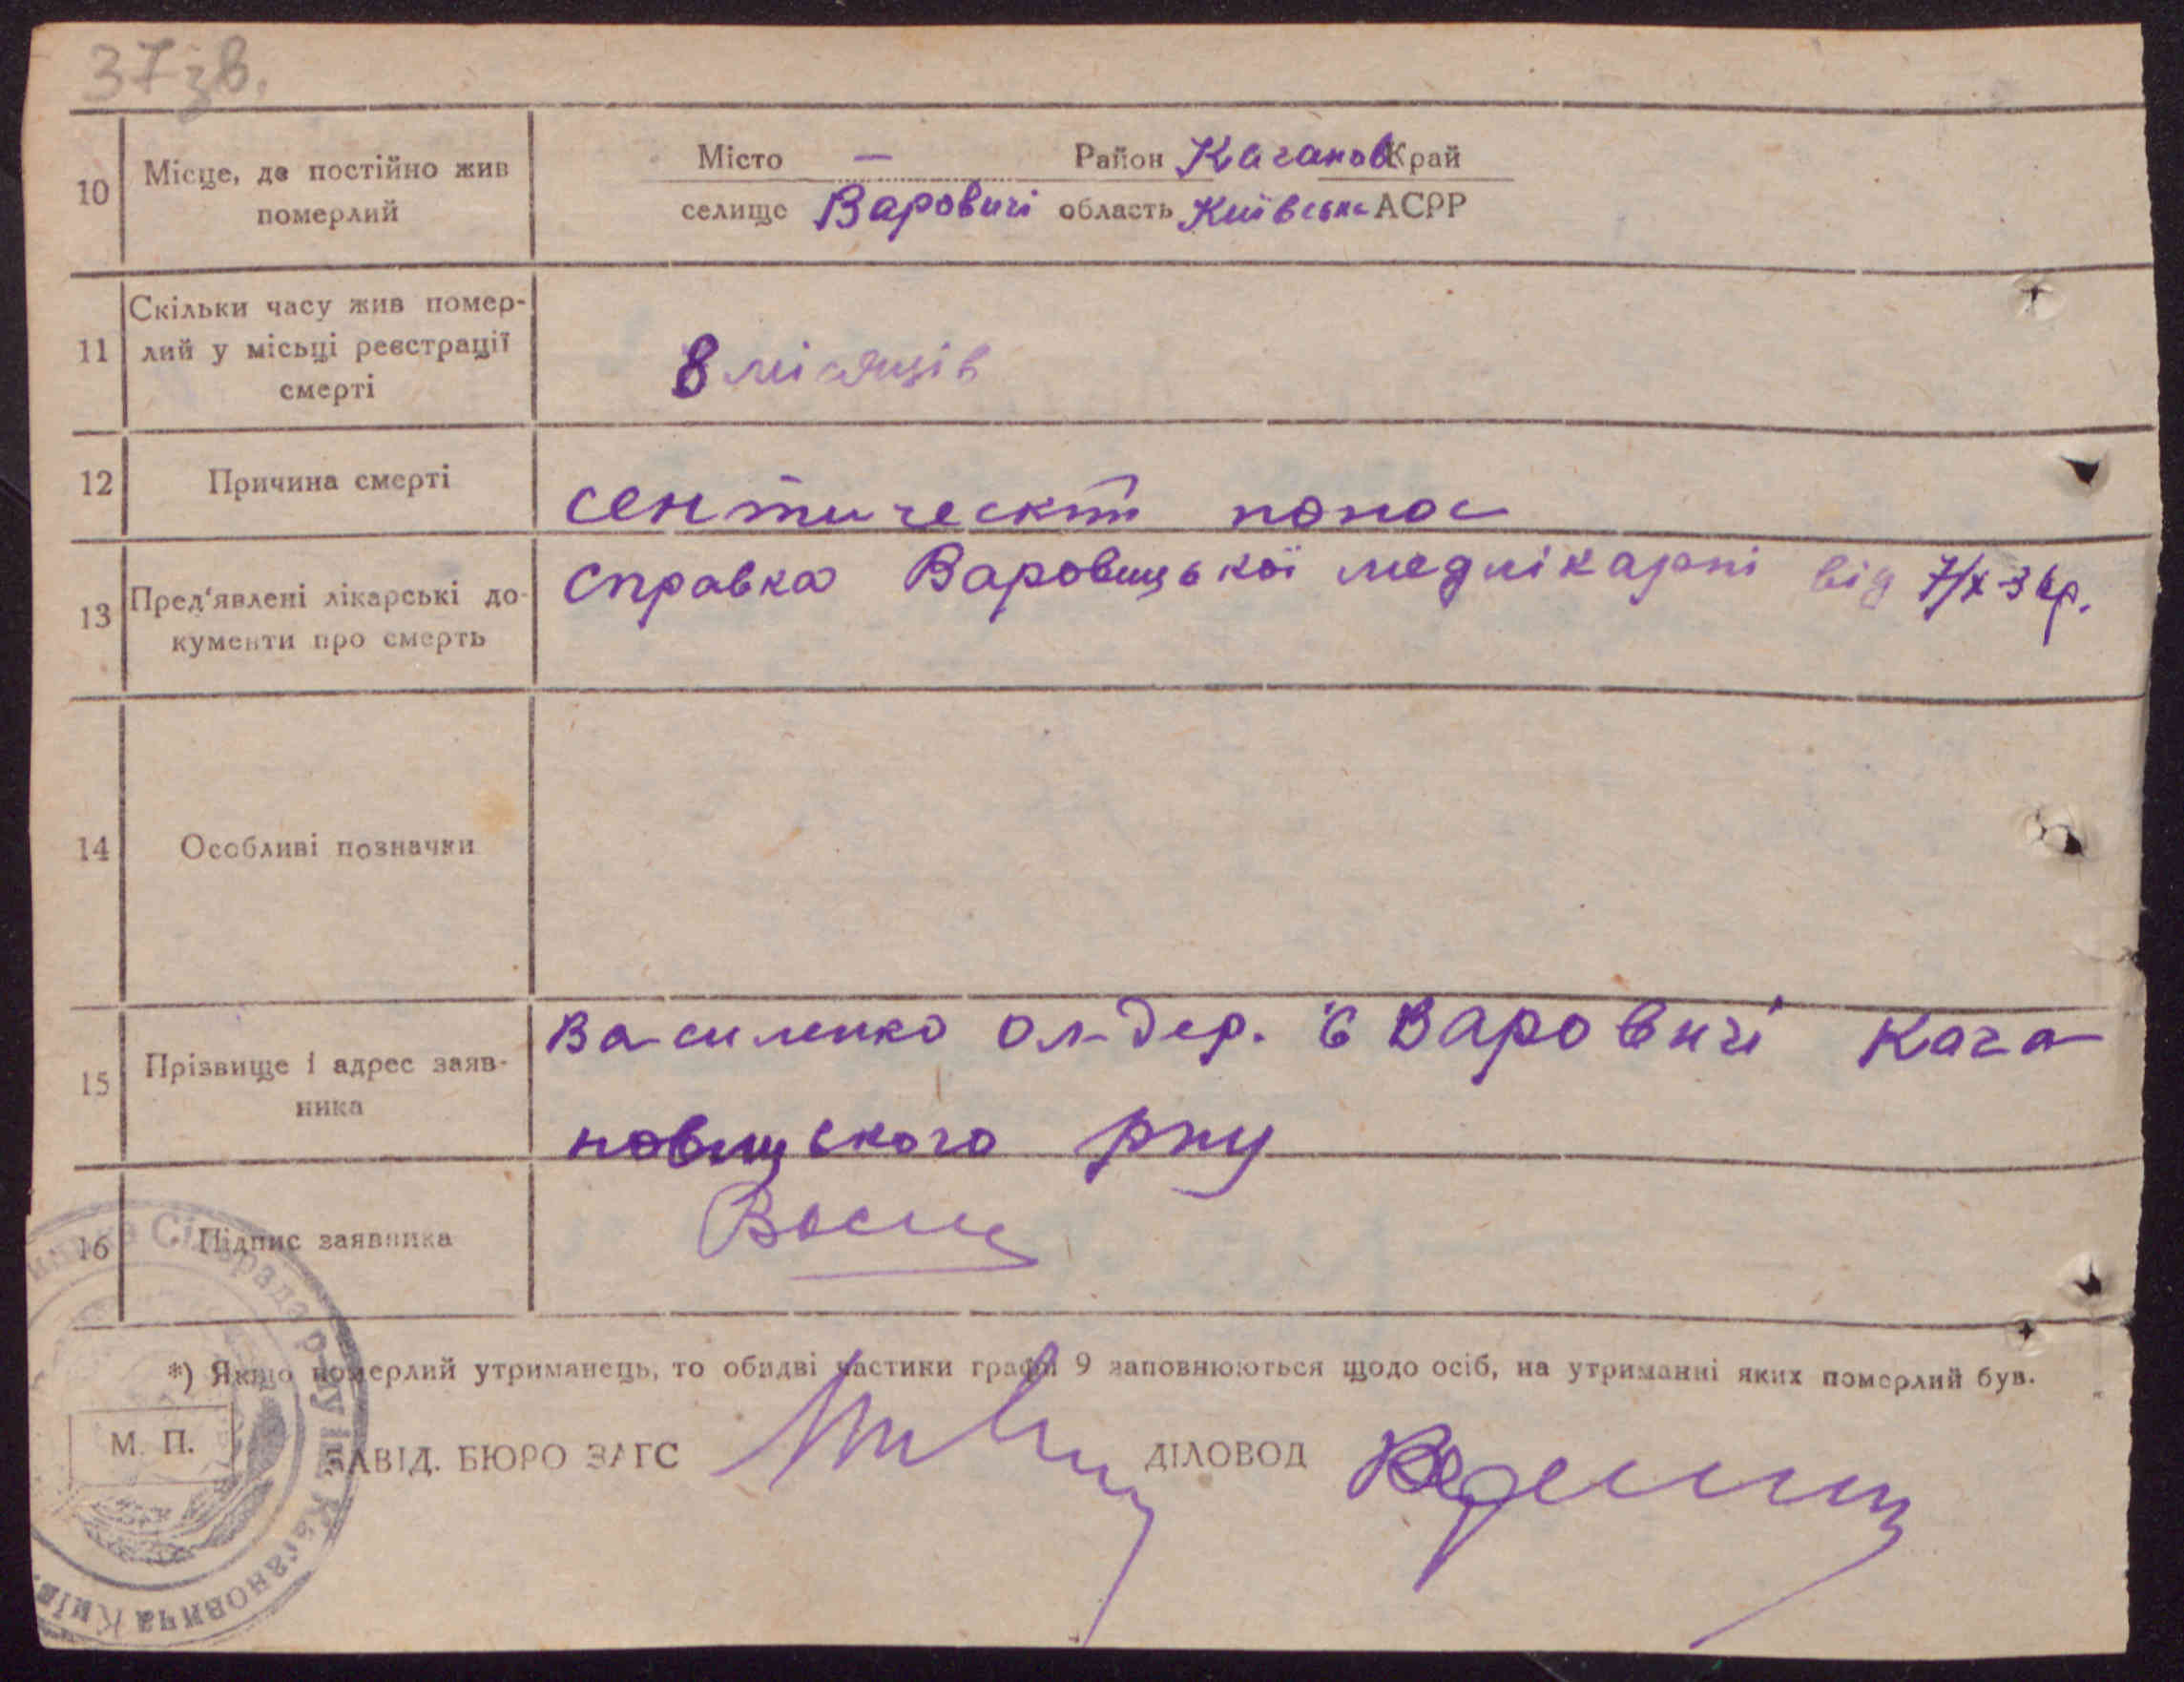 37зв.
10 Місце, де постійно жив
померлий
Місто — Район Каганов Край
селище Варовичі область Київська АСРР
11 Скільки часу жив помер-
лий у місьці реєстрації
смерті
8 місяців
12 Причина смерті
понос
13 Пред'явлені лікарські до-
кументи про смерть
справка Варовицької медлікарні від 7/X-36р.
14 Особливі позначки
15 Прізвище і адрес заяв-
ника
Василенко с Варовичі Кага
новицького рну
16 Підпис заявника
*) Якщо померлий утриманець, то обидві частики графи 9 заповнюються щодо осіб, на утриманні яких померлий був.
М. П.
ЗАВІД. БЮРО ЗАГС ДІЛОВОД
Сільрада р-ну ім Кагановича Київ.